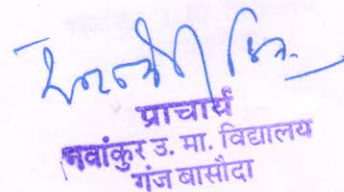 प्राचार्य
नवांकुर उ. मा. विद्यालय
गंज बासौदा